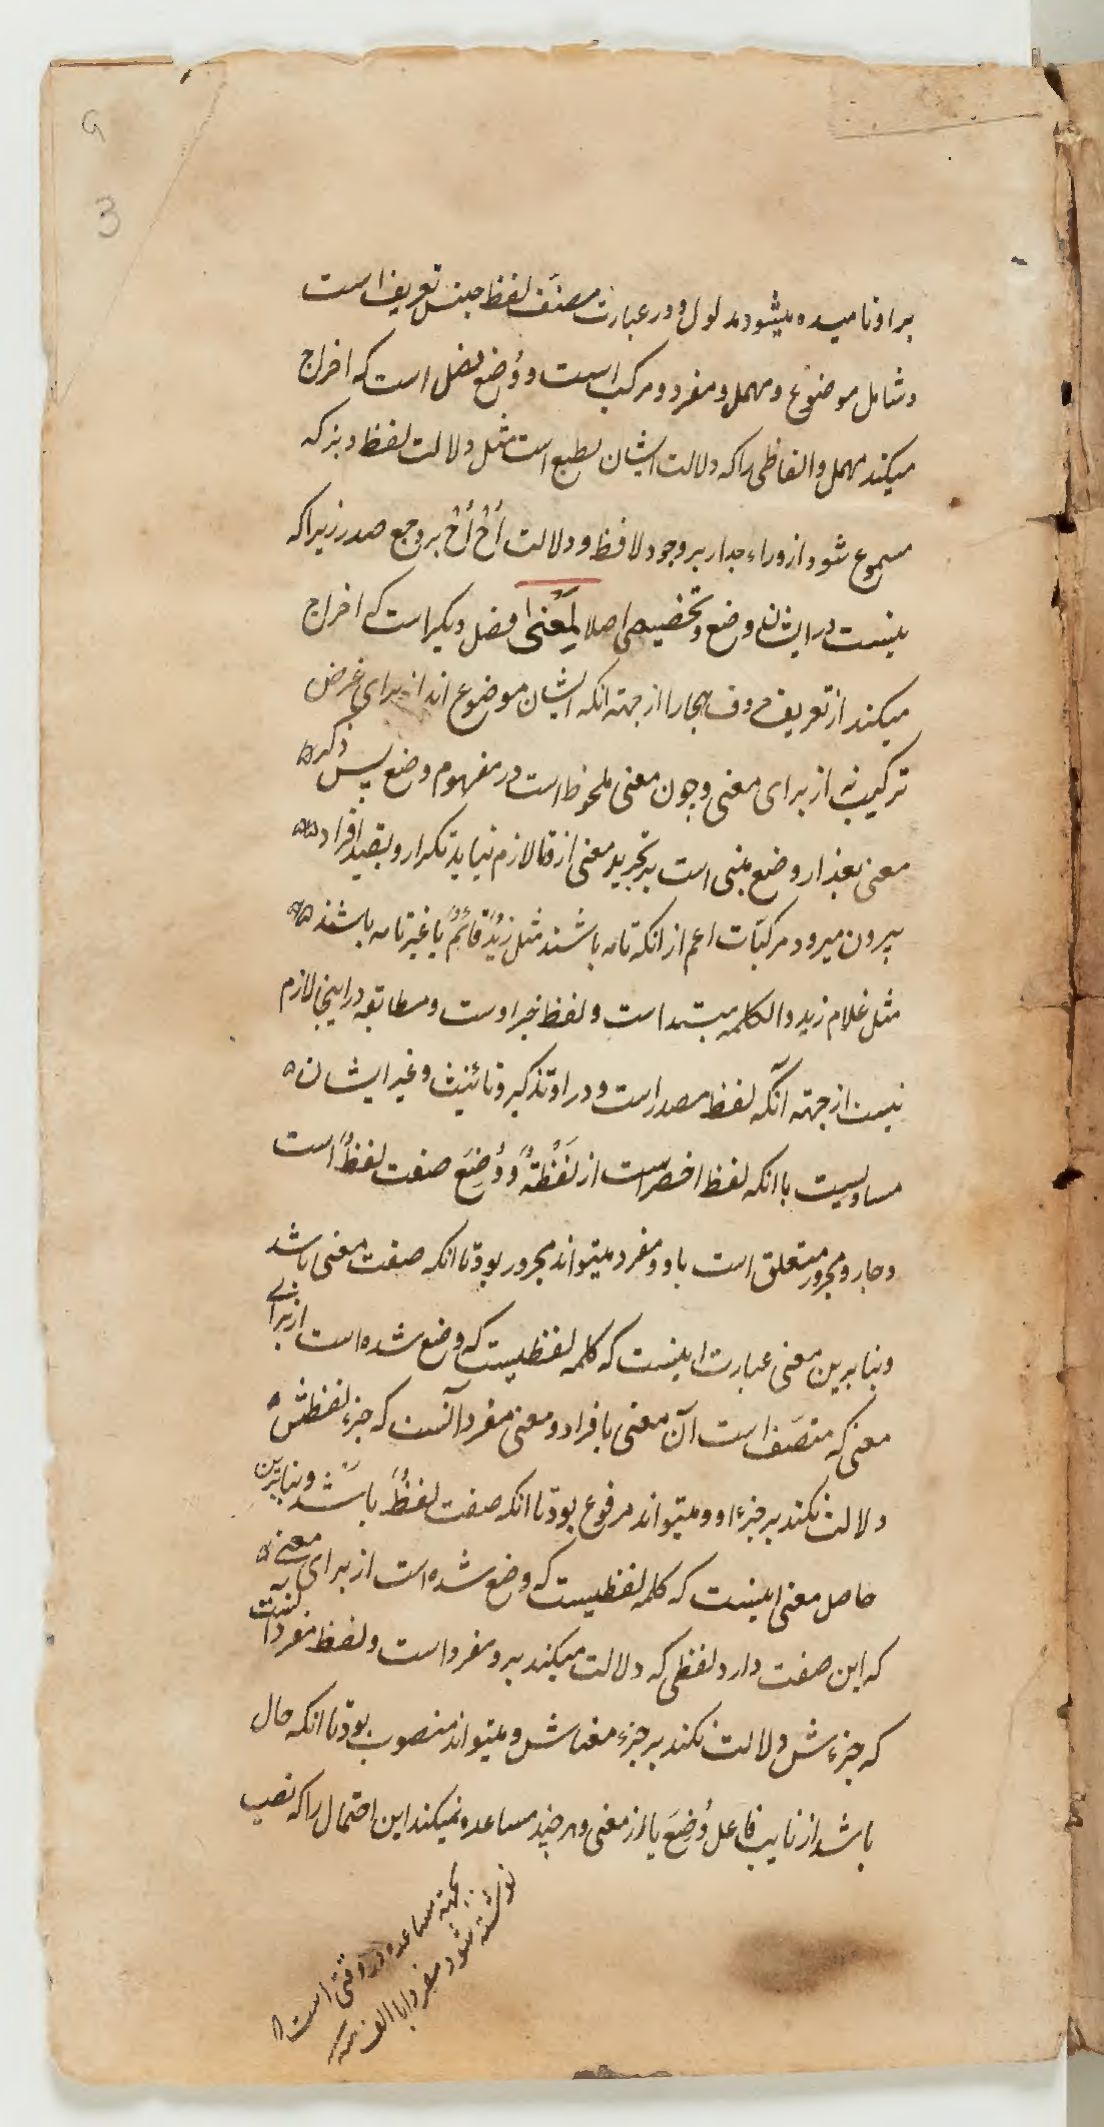 براو نامیده میشود مدلول و در عبارت مصنف لفظ جنس تعریف است
و شامل موضوع و مهمل و مفرد و مرکب است و وُضع فصل است که اخراج
میکند مهمل و الفاظی را که دلالت ایشان بطبع است مثل دلالت لفظ دیز که
مسموع شود از وراء جدار بر وجود لافظ و دلالت أُحْ أُحْ بر وجع صدر زیرا که
نیست در ایشان وضع و تخصیص اصلا لِمَعْنیً فصل دیگر است که اخراج
میکند از تعریف حروف هجا را از جهته انکه ایشان موضوع اند از برای غرض
ترکیب نه از برای معنی و چون معنی ملحوظ است در مفهوم وضع پس ذکر
معنی بعد از وضع مبنی است بر تجرید معنی از و تا لازم نیاید تکرار و بقید افراد
بیرون میرود مرکبّات اعم از انکه تامه باشند مثل زیدٌ قائمٌ یا غیر تامه باشند
مثل غلام زید و الکلمه مبتدا است و لفظ خبر اوست و مطابقه در اینجا لازم
نیست از جهته آنکه لفظ مصدر است و در او تذکیر و تائنیث و غیر ایشان
مساویست با انکه لفظ اخصر است از لَفْظَةٌ و وُضِعَ صفت لفظٌ است
و جار و مجرور متعلق است باو و مفرد میتواند مجرور بود تا انکه صفت معنی باشد
و بنابرین معنی عبارت اینست که کلمه لفظیست که وضع شده است از برای
معنی که متصَف است آن معنی بافراد و معنی مفرد آنست که جزء لفظش
دلالت نکند بر جزء او و میتواند مرفوع بود تا انکه صفت لفظٌ باشد و بنابرین
حاصل معنی اینست که کلمه لفظیست که وضع شده است از برای معنی
که این صفت دارد لفظی که دلالت میکند برو مفرد است و لفظ مفرد آنست
که جزءش دلالت نکند بر جزء معناش و میتواند منصوب بود تا انکه حال
باشد از نایب فاعل وُضِعَ یا از معنی و هر چند مساعده نمیکند این احتمال را که نصب
بجهته مساعده در وقتی است
نوشته شود مفردا با الف
9
3